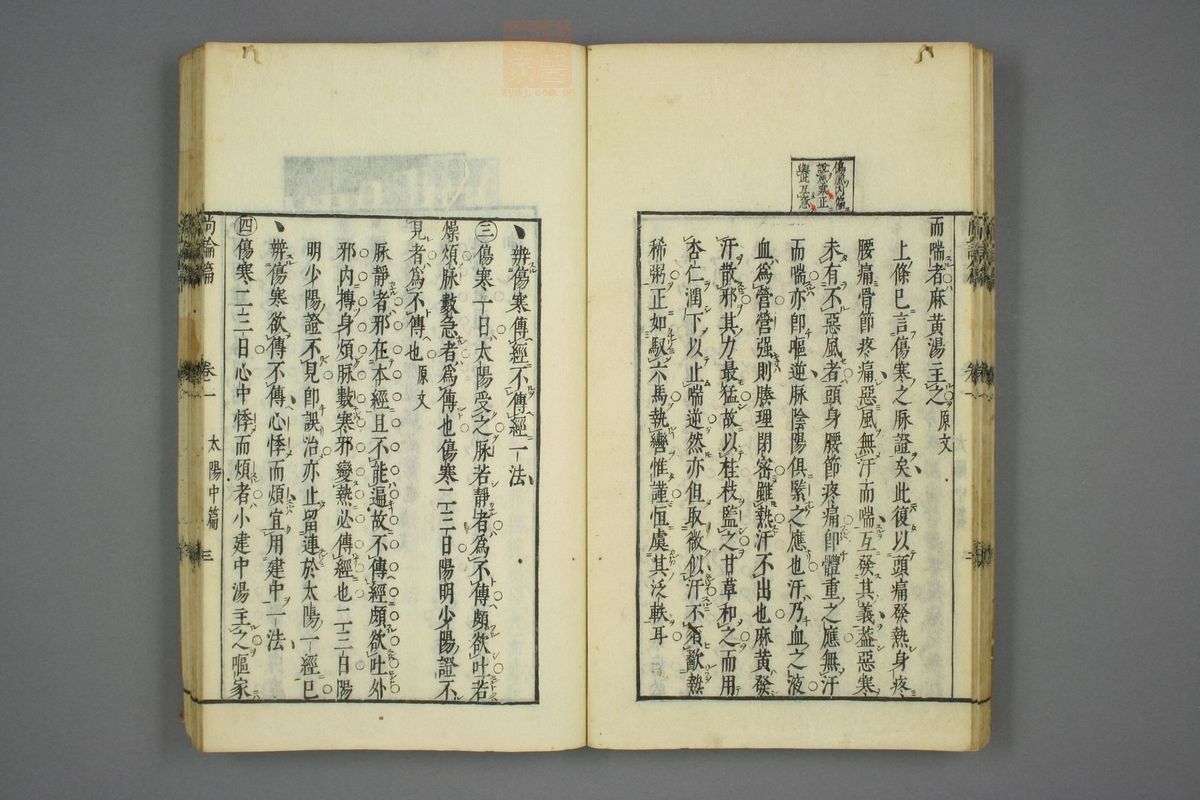 傷風内編
而喘者麻黄湯主之 原文
上條已言傷寒之脉證矣此復以頭痛發熱身疼
腰痛骨節疼痛惡風無汗而喘互發其義葢惡寒
未有不惡風者頭身腰節疼痛卽體重之應無汗
而喘亦卽嘔逆脉陰陽俱緊之應也汗乃血之液
血爲營營强則腠理閉密雖熱汗不出也麻黄發
汗散邪其力最猛故以桂枝監之甘草和之而用
杏仁潤下以止喘逆然亦但取微似汗不須歠熱
稀粥正如馭六馬執轡惟謹恒虞其泛軼耳
辨傷寒傳經不傳經一法
㊂傷寒一日太陽受之脉若靜者爲不傳頗欲吐若
燥煩脉數急者爲傳也傷寒二三日陽明少陽證不
見者爲不傳也 原文
脉靜者邪在本經且不能遍故不傳經頗欲吐外
邪内搏身煩脉數寒邪變熱必傳經也二三日陽
明少陽證不見卽誤治亦止留連於太陽一經巳
辨傷寒欲傳不傳心悸而煩宜用建中一法
㊃傷寒二三日心中悸而煩者小建中湯主之嘔家
尚論篇 卷一 太陽中篇 三